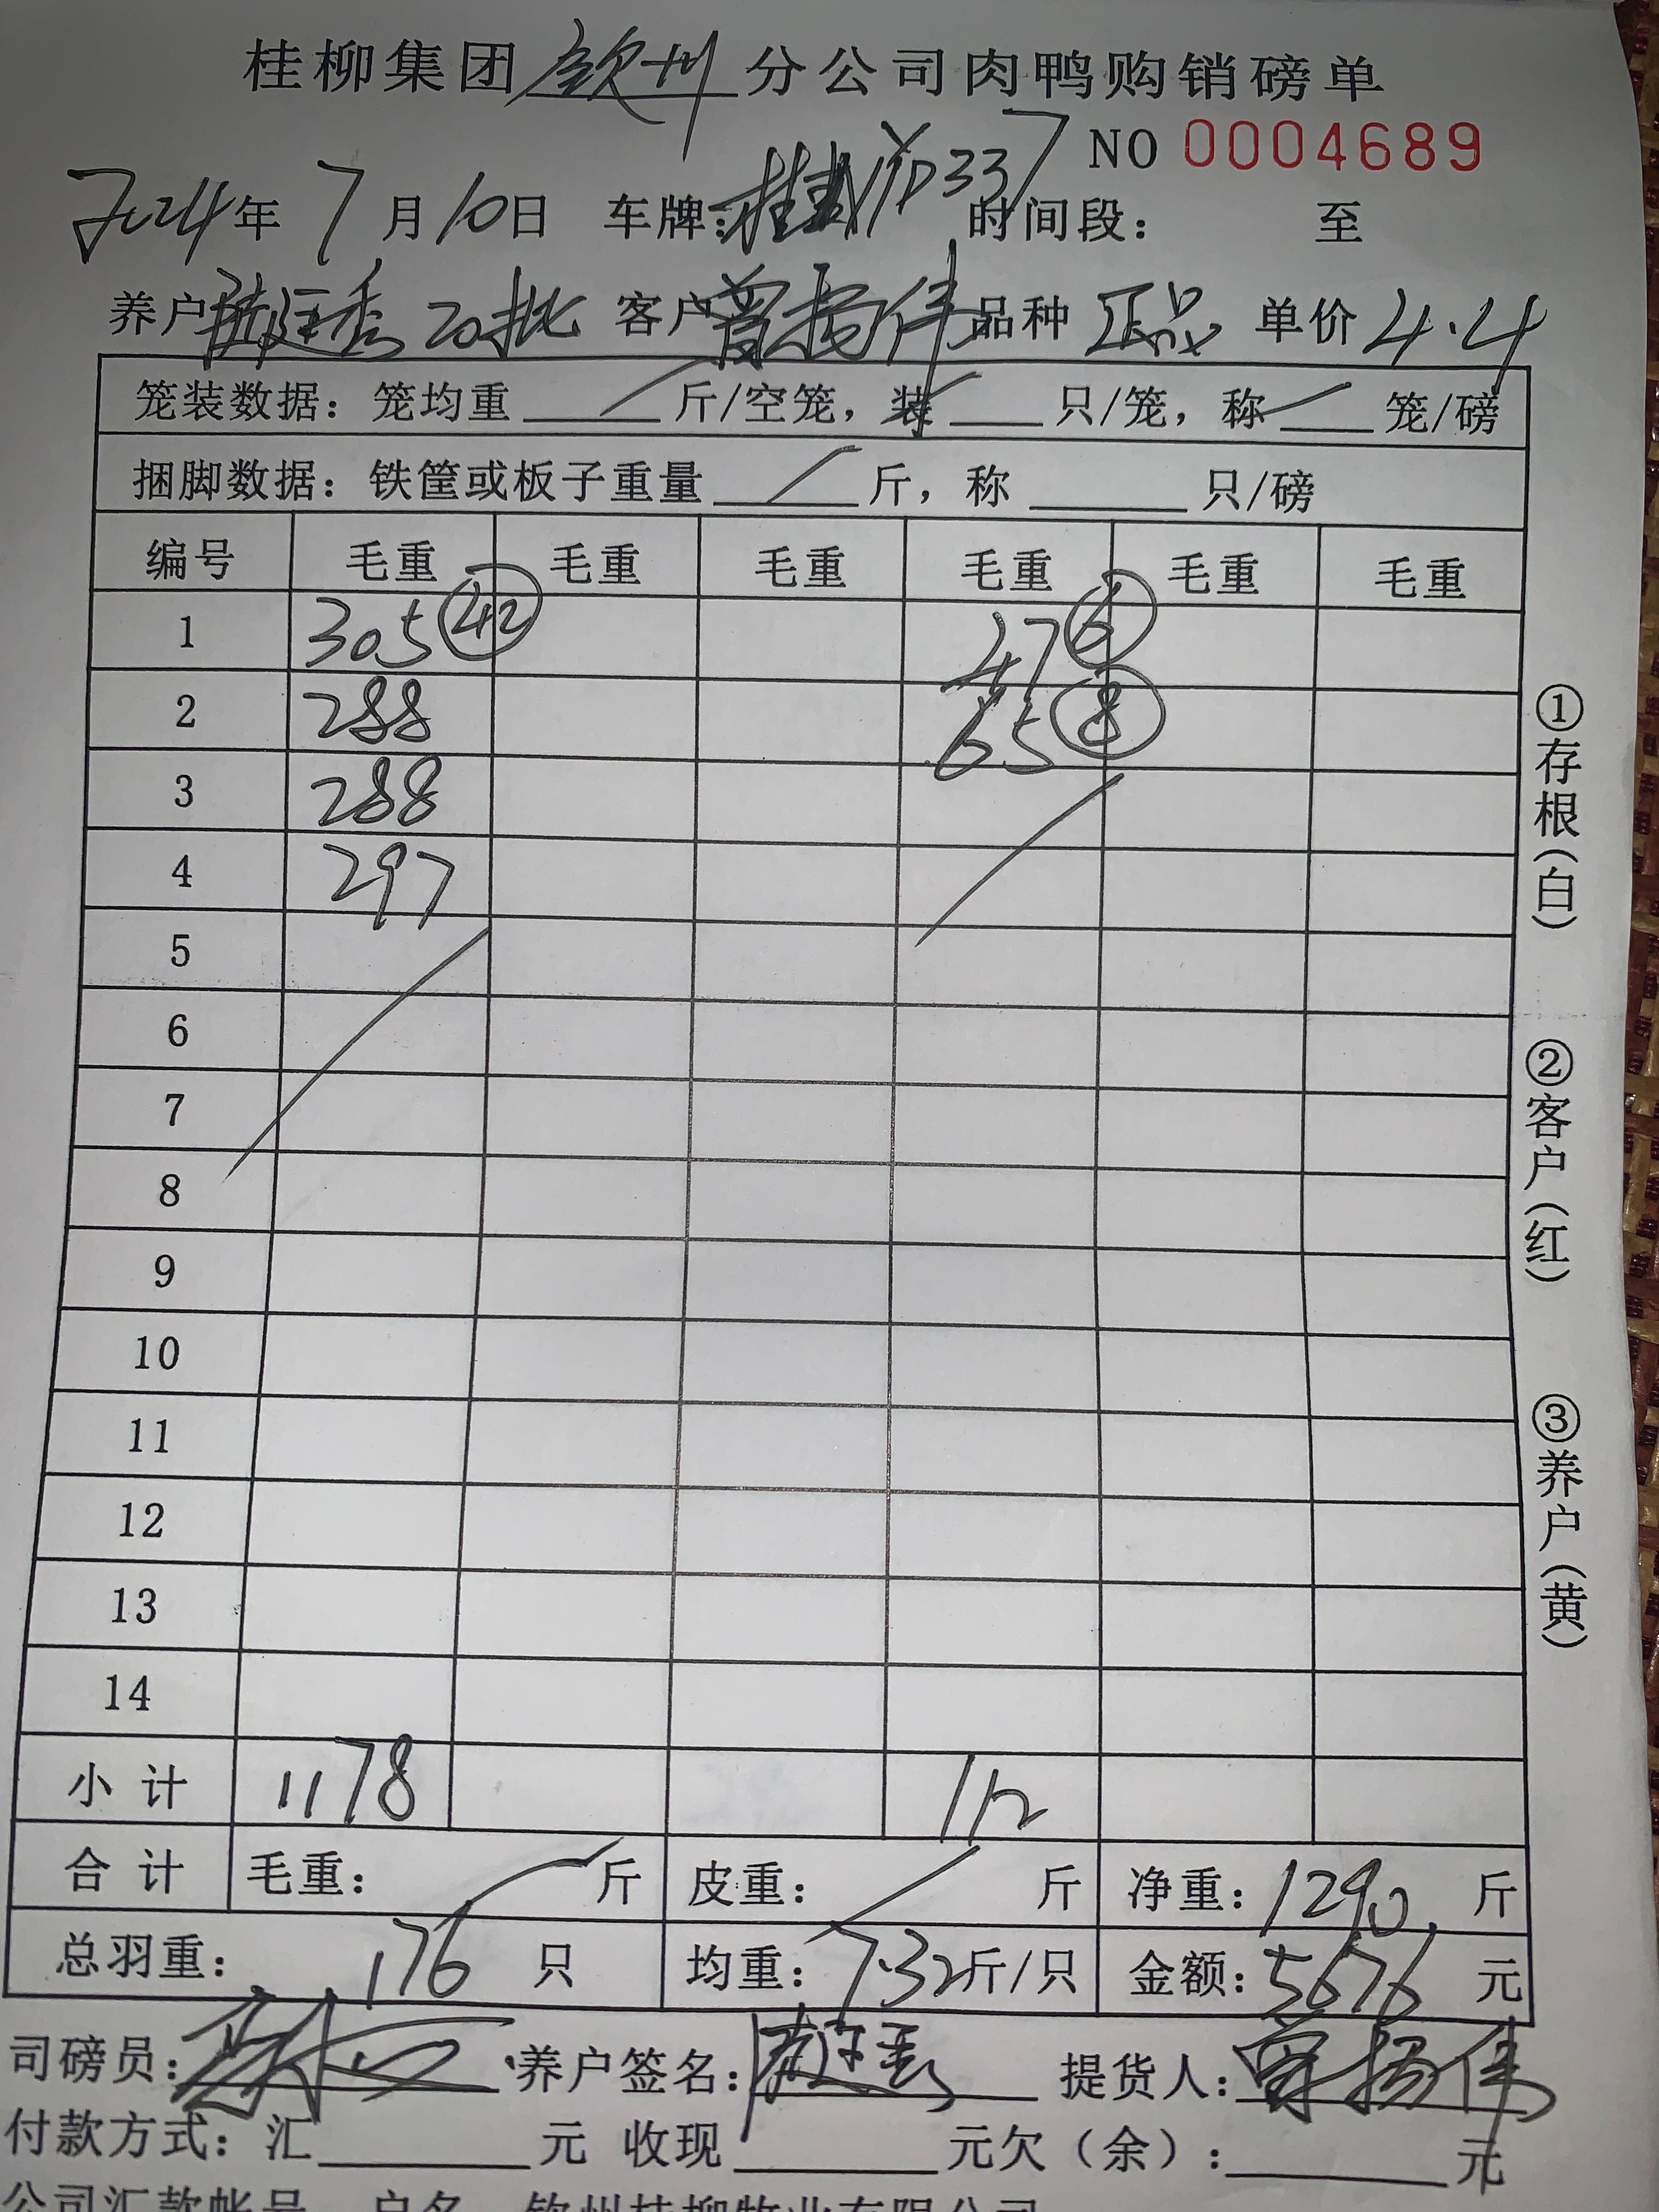 桂柳集团钦州分公司肉鸭购销磅单
NO 0004689
2024年 7月10日 车牌: 时间段: 至
养户 20批 客户曾扬伟 品种 正品 单价 4.4
笼装数据: 笼均重 斤/空笼, 装 只/笼, 称 笼/磅
捆脚数据: 铁筐或板子重量 斤, 称 只/磅
编号 毛重 毛重 毛重 毛重 毛重 毛重
1 305 42 47 6
2 288 65 8
3 288
4 297
5
6
7
8
9
10
11
12
13
14
小计 1178 112
合计 毛重: 斤 皮重: 斤 净重: 1290 斤
总羽重: 176 只 均重: 7.32斤/只 金额: 5676 元
司磅员: 养户签名: 提货人: 曾扬伟
付款方式: 汇 元 收现 元欠(余): 元
公司汇款帐号 户名 钦州桂柳牧业有限公司
①存根(白)
②客户(红)
③养户(黄)